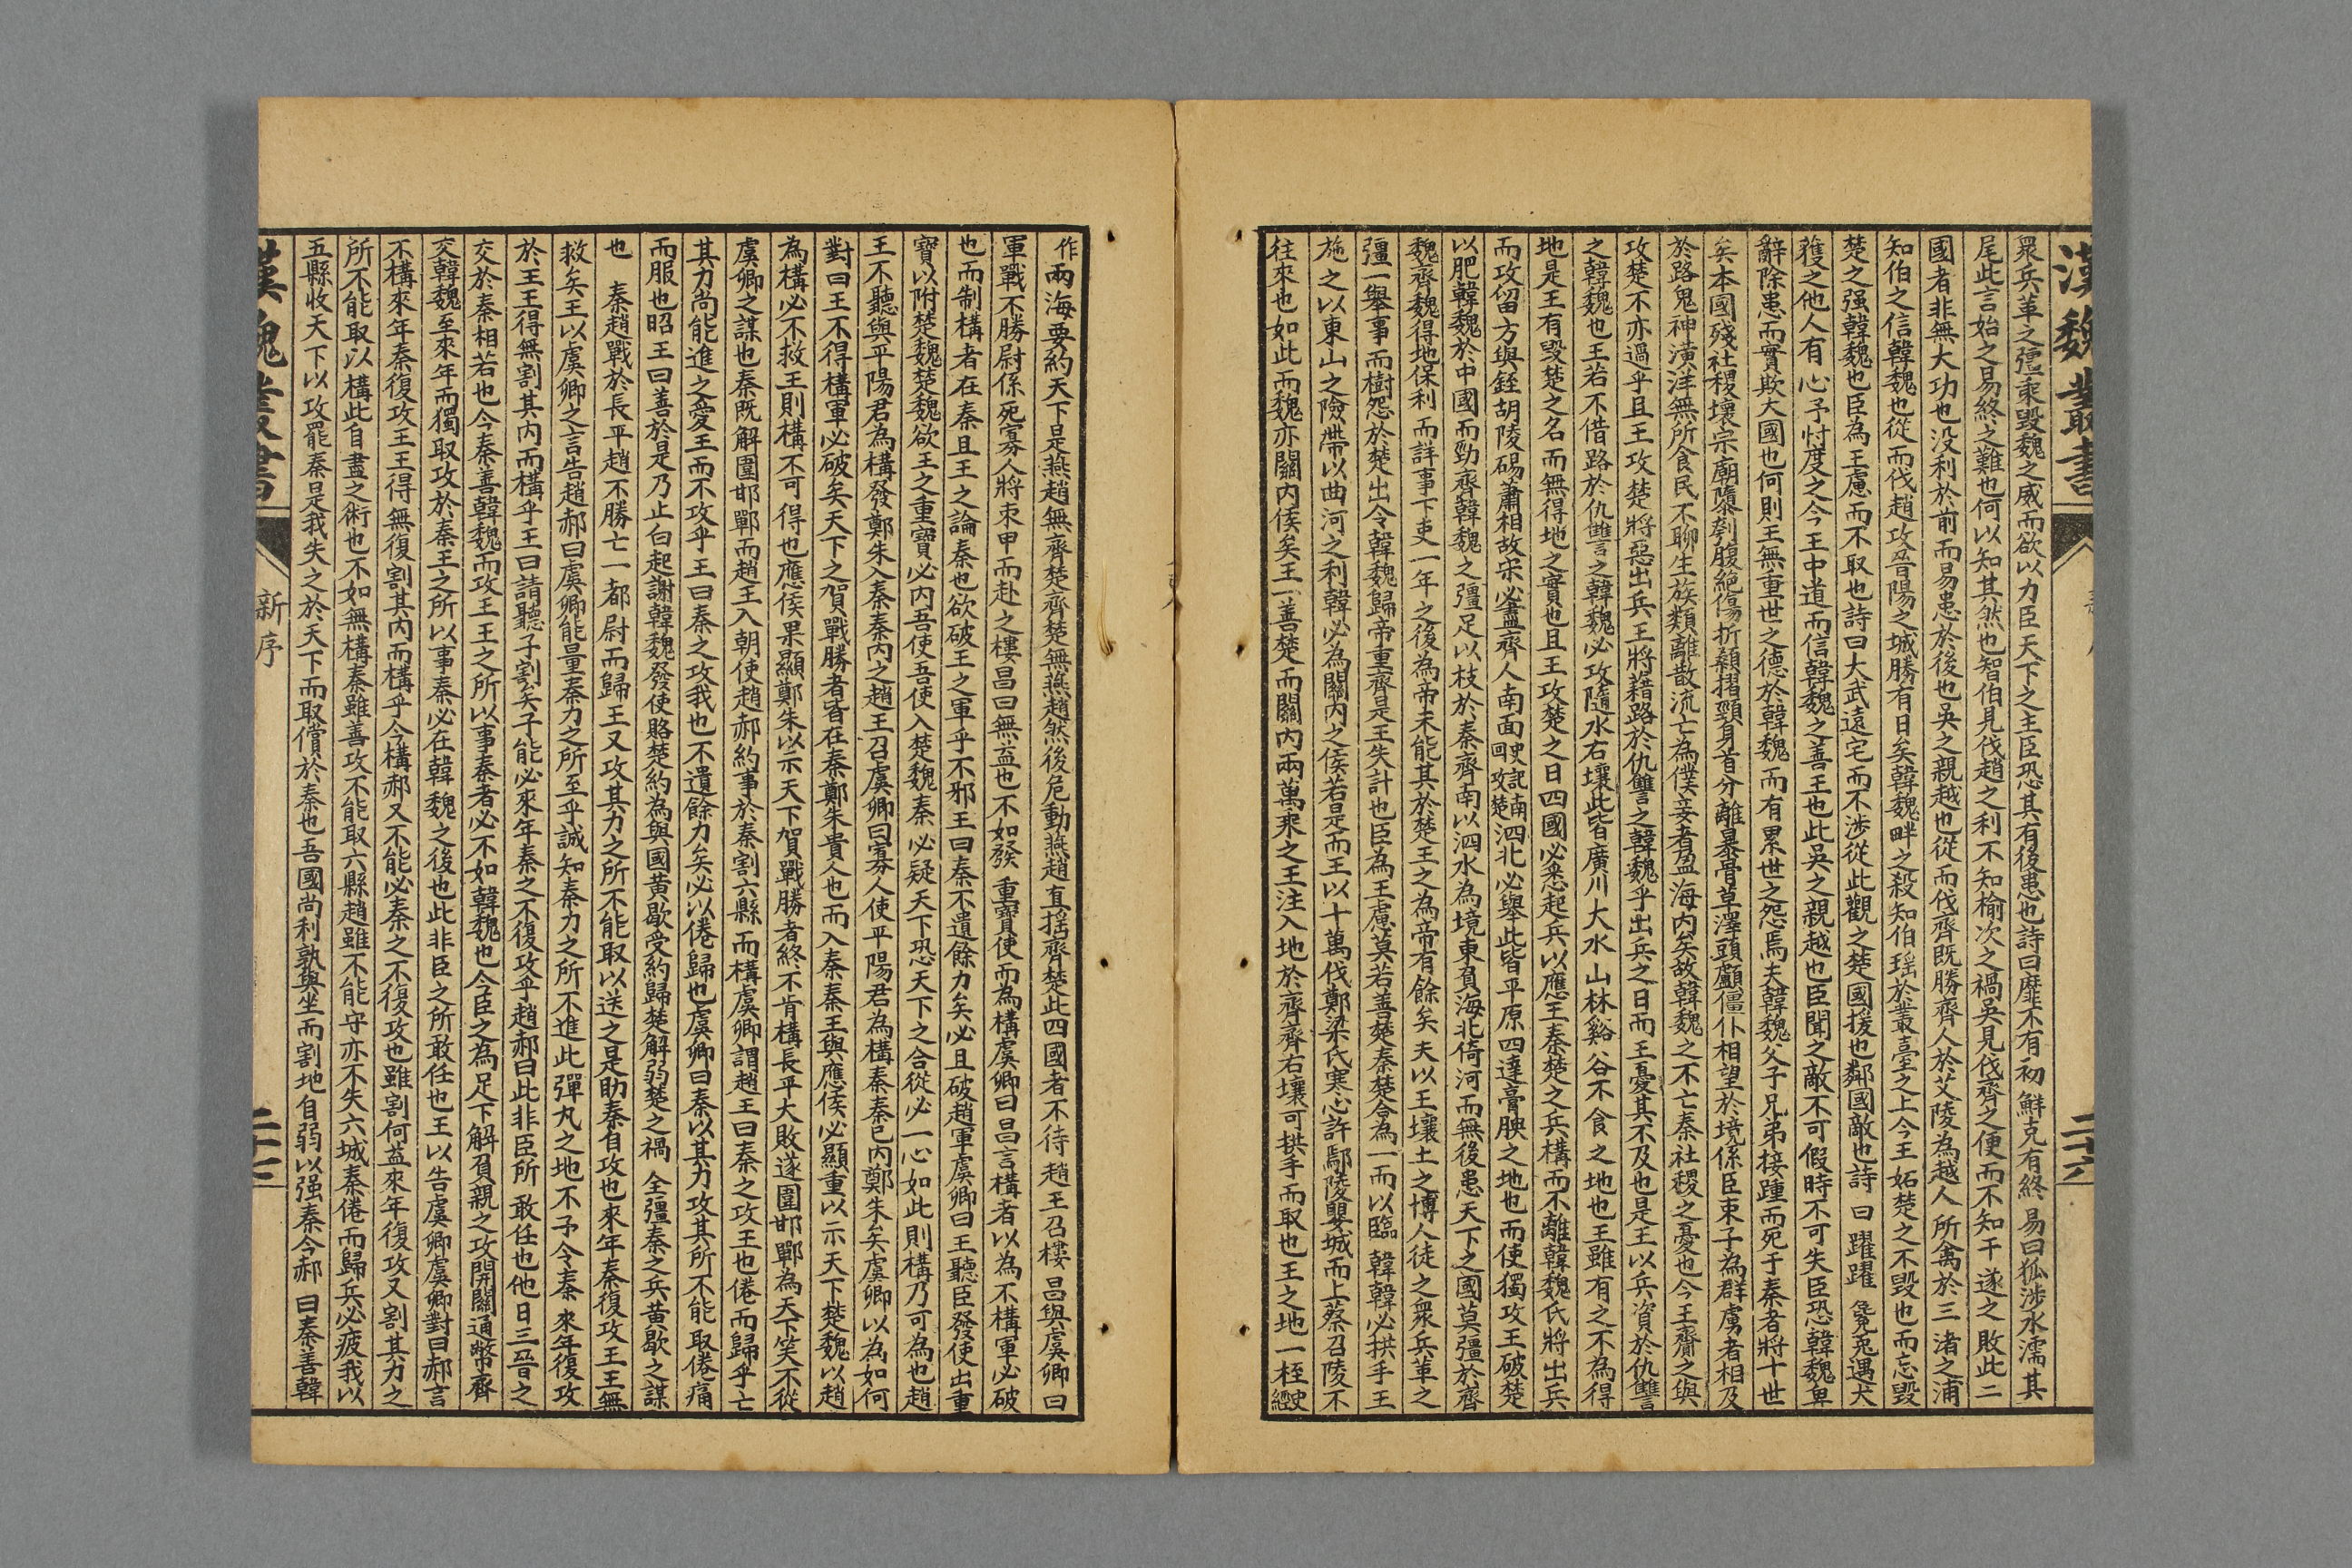 漢魏叢書
二十六
眾兵革之彊乘毀魏之威而欲以力臣天下之主臣恐其有後患也詩曰靡不有初鮮克有終易曰狐涉水濡其
尾此言始之易終之難也何以知其然也智伯見伐趙之利不知榆次之禍吳見伐齊之便而不知干遂之敗此二
國者非無大功也没利於前而易患於後也吳之親越也從而伐齊既勝齊人於艾陵為越人所禽於三渚之浦
知伯之信韓魏也從而伐趙攻晉陽之城勝有日矣韓魏畔之殺知伯瑶於叢臺之上今王妬楚之不毀也而忘毀
楚之强韓魏也臣為王慮而不取也詩曰大武遠宅而不涉從此觀之楚國援也鄰國敵也詩曰躍躍毚兎遇犬
獲之他人有心予忖度之今王中道而信韓魏之善王也此吳之親越也臣聞之敵不可假時不可失臣恐韓魏卑
辭除患而實欺大國也何則王無重世之德於韓魏而有累世之怨焉夫韓魏父子兄弟接踵而死于秦者將十世
矣本國殘社稷壞宗廟隳刳腹絶傷折顙摺頸身首分離暴骨草澤頭顱僵仆相望於境係臣束子為群虜者相及
於路鬼神潢洋無所食民不聊生族類離散流亡為僕妾者盈海內矣故韓魏之不亡秦社稷之憂也今王齎之與
攻楚不亦過乎且王攻楚將惡出兵王將藉路於仇讐之韓魏乎出兵之日而王憂其不及也是王以兵資於仇讐
之韓魏也王若不借路於仇讐之韓魏必攻隨水右壤此皆廣川大水山林谿谷不食之地也王雖有之不為得
地是王有毀楚之名而無得地之實也且王攻楚之日四國必悉起兵以應王秦楚之兵構而不離韓魏氏將出兵
而攻留方與銍胡陵碭蕭相故宋必盡齊人南面史記南攻楚泗北必舉此皆平原四達膏腴之地也而使獨攻王破楚
以肥韓魏於中國而勁齊韓魏之彊足以枝於秦齊南以泗水為境東負海北倚河而無後患天下之國莫彊於齊
魏齊魏得地保利而詳事下吏一年之後為帝未能其於楚王之為帝有餘矣夫以王壤土之博人徒之眾兵革之
彊一舉事而樹怨於楚出令韓魏歸帝重齊是王失計也臣為王慮莫若善楚秦楚合為一而以臨韓韓必拱手王
施之以東山之險帶以曲河之利韓必為關內之侯若是而王以十萬伐鄭梁氏寒心許鄢陵嬰城而上蔡召陵不
往來也如此而魏亦關內侯矣王一善楚而關內兩萬乘之王注入地於齊齊右壤可拱手而取也王之地一桎史經
作兩海要約天下是燕趙無齊楚齊楚無燕趙然後危動燕趙直摇齊楚此四國者不待趙王召樓昌與虞卿曰
軍戰不勝尉係死寡人將束甲而赴之樓昌曰無益也不如發重寶使而為構虞卿曰昌言構者以為不構軍必破
也而制構者在秦且王之論秦也欲破王之軍乎不邪王曰秦不遺餘力矣必且破趙軍虞卿曰王聽臣發使出重
寶以附楚魏楚魏欲王之重寶必內吾使吾使入楚魏秦必疑天下恐天下之合從必一心如此則構乃可為也趙
王不聽與平陽君為構發鄭朱入秦秦內之趙王召虞卿曰寡人使平陽君為構秦秦已內鄭朱矣虞卿以為如何
對曰王不得構軍必破矣天下之賀戰勝者皆在秦鄭朱貴人也而入秦秦王與應侯必顯重以示天下楚魏以趙
為構必不救王則構不可得也應侯果顯鄭朱以示天下賀戰勝者終不肯構長平大敗遂圍邯鄲為天下笑不從
虞卿之謀也秦既解圍邯鄲而趙王入朝使趙郝約事於秦割六縣而構虞卿謂趙王曰秦之攻王也倦而歸乎亡
其力尚能進之愛王而不攻乎王曰秦之攻我也不遺餘力矣必以倦歸也虞卿曰秦以其力攻其所不能取倦痛
而服也昭王曰善於是乃止白起謝韓魏發使賂楚約為與國黄歇受約歸楚解弱楚之禍全彊秦之兵黄歇之謀
也　秦趙戰於長平趙不勝亡一都尉而歸王又攻其力之所不能取以送之是助秦自攻也來年秦復攻王王無
救矣王以虞卿之言告趙郝曰虞卿能量秦力之所至乎誠知秦力之所不進此彈丸之地不予令秦來年復攻
於王王得無割其內而構乎王曰請聽子割矣子能必來年秦之不復攻乎趙郝曰此非臣所敢任也他日三晉之
交於秦相若也今秦善韓魏而攻王王之所以事秦者必不如韓魏也今臣之為足下解負親之攻開關通幣齊
交韓魏至來年而獨取攻於秦王之所以事秦必在韓魏之後也此非臣之所敢任也王以告虞卿虞卿對曰郝言
不構來年秦復攻王王得無復割其內而構乎今構郝又不能必秦之不復攻也雖割何益來年復攻又割其力之
所不能取以構此自盡之術也不如無構秦雖善攻不能取六縣趙雖不能守亦不失六城秦倦而歸兵必疲我以
五縣收天下以攻罷秦是我失之於天下而取償於秦也吾國尚利孰與坐而割地自弱以强秦今郝曰秦善韓
漢魏叢書
新序
二十七